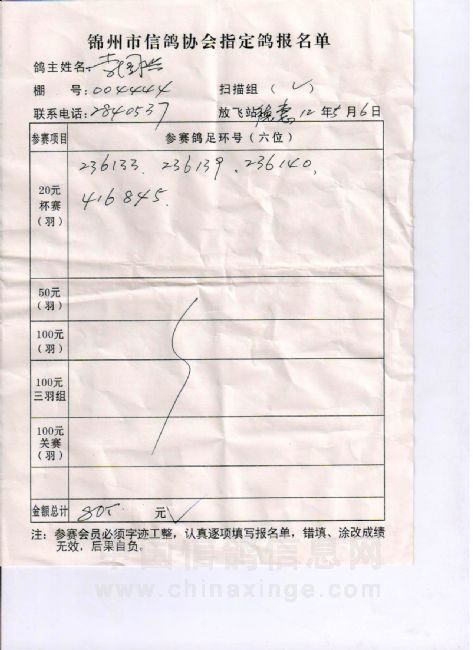 锦州市信鸽协会指定鸽报名单
鸽主姓名:
棚 号:004444 扫描组 ( ✓ )
联系电话:2840537 放飞站 12 年 5 月 6 日
参赛项目 参赛鸽足环号(六位)
20元
杯赛
(羽)
236133. 236139、236140,
416845.
50元
(羽)
100元
(羽)
100元
三羽组
100元
关赛
(羽)
金额总计 元
注: 参赛会员必须字迹工整,认真逐项填写报名单,错填、涂改成绩
无效,后果自负。
中国信鸽信息网
www.chinaxinge.com